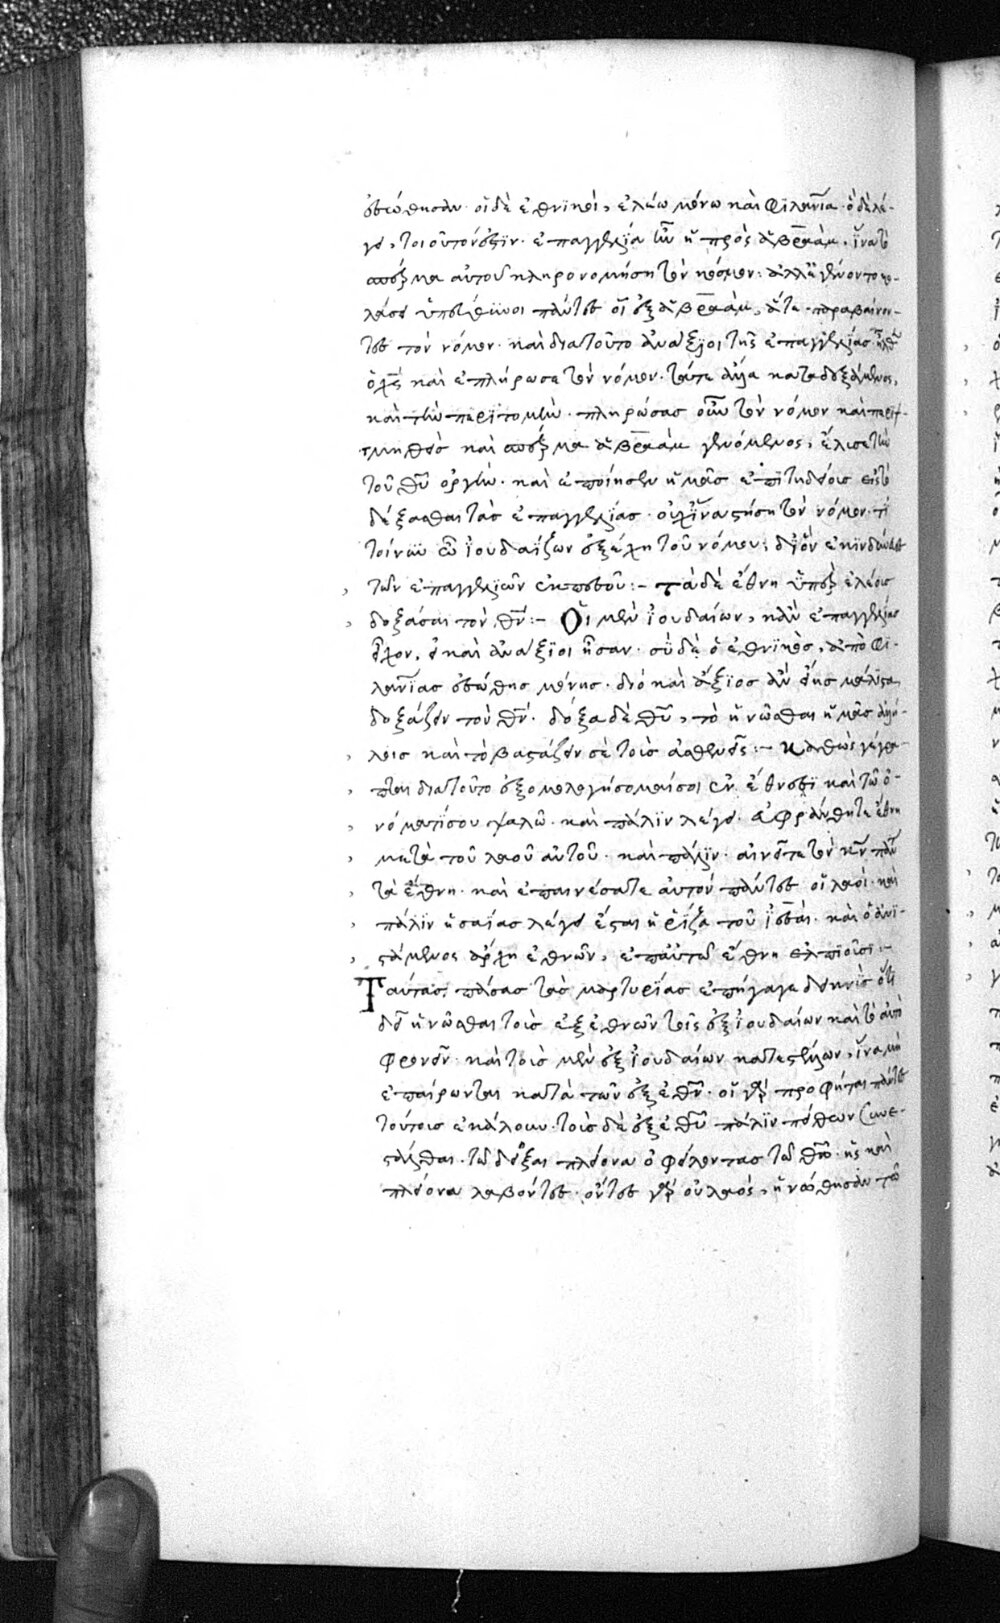 ἐσώθησαν· οἱ δὲ ἐθνικοί, ἐλέω μόνω καὶ φιλανία· ὁ δὲ λέ-
γει, τοιοῦτόν ἐστιν· ἐπαγγελία ἦν ἡ πρὸς ἀβραὰμ, ἵνα τὸ
σπέρμα αὐτοῦ κληρονομήση τὸν κόσμον· ἀλλ' ἐγένοντο κο-
λάσει ὑπεύθυνοι πάντες οἱ ἐξ ἀβραὰμ, ἅτε παραβαίνον-
τες τὸν νόμον· καὶ διὰ τοῦτο ἀνάξιοι τῆς ἐπαγγελίας ἦλθεν
ὁ χς καὶ ἐπλήρωσε τὸν νόμον· τά τε ἄλλα καταδεξάμενος,
καὶ τὴν περιτομὴν· πληρώσας οὖν τὸν νόμον καὶ περι-
τμηθεὶς καὶ σπέρμα ἀβραὰμ γενόμενος, ἔλυσε τὴν
τοῦ θυ ὀργὴν· καὶ ἐποίησεν ἡμᾶς ἐπιτηδείους εἰς τὸ
δέξασθαι τὰς ἐπαγγελίας· οὐχ ἵνα στήση τὸν νόμον· τί
τοίνυν ὦ ἰουδαΐζων ἐξέχη τοῦ νόμου; δι' ὃν ἐκινδύνευες
τῶν ἐπαγγελιῶν ἐκπεσεῖν:– τὰ δὲ ἔθνη ὑπὲρ ἐλέους
δοξάσαι τὸν θν:– Οἱ μὲν ἰουδαίων, κἂν ἐπαγγελίας
εἶχον, εἰ καὶ ἀνάξιοι ἦσαν· σὺ δὲ ὁ ἐθνικὸς, ἀπὸ φι-
λανίας ἐσώθης μόνης· διὸ καὶ ἄξιος ἂν εἴης μάλιστα
δοξάζειν τὸν θν· δόξα δὲ θυ, τὸ ἡνῶσθαι ἡμᾶς ἀλλή-
λοις καὶ τὸ βαστάζειν σὲ τοὺς ἀσθενεῖς:– Καθὼς γέγρα-
πται διὰ τοῦτο ἐξομολογήσομαί σοι ἐν ἔθνεσι καὶ τῶ ὀ-
νόματί σου ψαλῶ· καὶ πάλιν λέγει· εὐφράνθητε ἔθνη
μετὰ τοῦ λαοῦ αὐτοῦ· καὶ πάλιν· αἰνεῖτε τὸν κν πάντα
τὰ ἔθνη· καὶ ἐπαινέσατε αὐτὸν πάντες οἱ λαοί· καὶ
πάλιν ἡσαίας λέγει ἔσται ἡ ῥίζα τοῦ ἰεσσαί· καὶ ὁ ἀνι-
στάμενος ἄρχειν ἐθνῶν, ἐπ' αὐτῶ ἔθνη ἐλπιοῦσι:–
Ταύτας πάσας τὰς μαρτυρίας ἐπήγαγε δεικνὺς ὅτι
δεῖ ἡνῶσθαι τοὺς ἐξ ἐθνῶν τοῖς ἐξ ἰουδαίων καὶ τὸ αὐτὸ
φρονεῖν· καὶ τοὺς μὲν ἐξ ἰουδαίων καταστέλλων, ἵνα μὴ
ἐπαίρωνται κατὰ τῶν ἐξ ἐθνῶν· οἱ γὰρ προφῆται πάντες
τούτους ἐκάλουν· τοὺς δὲ ἐξ ἐθνῶν πάλιν πείθων συνε-
στάλθαι· τῶ δεῖξαι πλείονα ὀφείλοντας τῶ θω· ὡς καὶ
πλείονα λαβόντες· οὗτοι γὰρ οὐ λαὸς, ἡνώθησαν τῶ